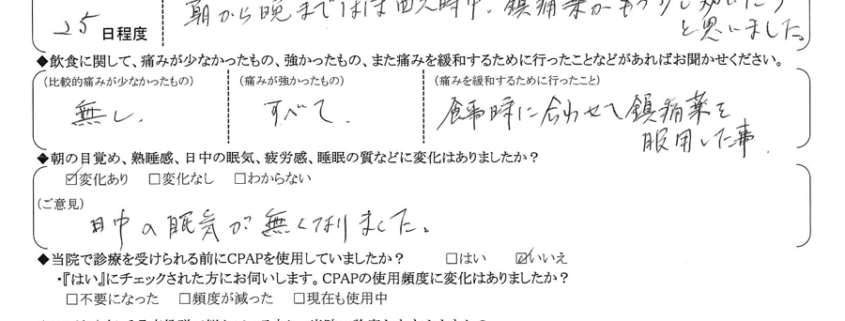 朝から晩までほぼ四六時中、鎮痛薬がもう少し効いたら
と思いました。
25 日程度
◆飲食に関して、痛みが少なかったもの、強かったもの、また痛みを緩和するために行ったことなどがあればお聞かせください。
(比較的痛みが少なかったもの) (痛みが強かったもの) (痛みを緩和するために行ったこと)
無し. すべて. 食事時に合わせて鎮痛薬を
服用した事.
◆朝の目覚め、熟睡感、日中の眠気、疲労感、睡眠の質などに変化はありましたか?
☑変化あり □変化なし □わからない
(ご意見)
日中の眠気が無くなりました。
◆当院で診療を受けられる前にCPAPを使用していましたか? □はい ☑いいえ
・『はい』にチェックされた方にお伺いします。CPAPの使用頻度に変化はありましたか?
□不要になった □頻度が減った □現在も使用中